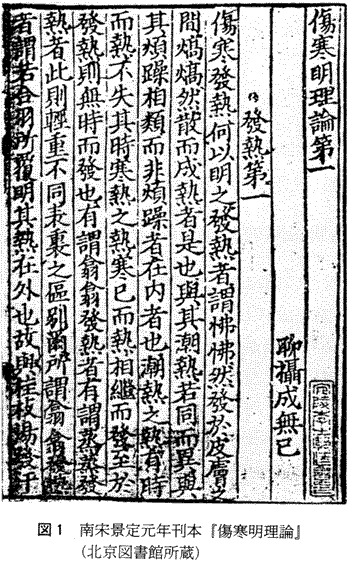 傷寒明理論第一
聊攝成無已
發熱第一
傷寒發熱何以明之發熱者謂怫怫然發於皮膚之
間熇熇然散而成熱者是也與其潮熱若同而異與
其煩躁相類而非煩躁者在內者也潮熱之熱有時
而熱不失其時寒熱之熱寒已而熱相繼而發至於
發熱則無時而發也有謂翕翕發熱者有謂蒸蒸發
熱者此則輕重不同表裏之區別爾所謂翕翕發熱
者謂若合羽所覆明其熱在外也故與桂枝湯發汗
図1 南宋景定元年刊本『傷寒明理論』
（北京図書館所蔵）